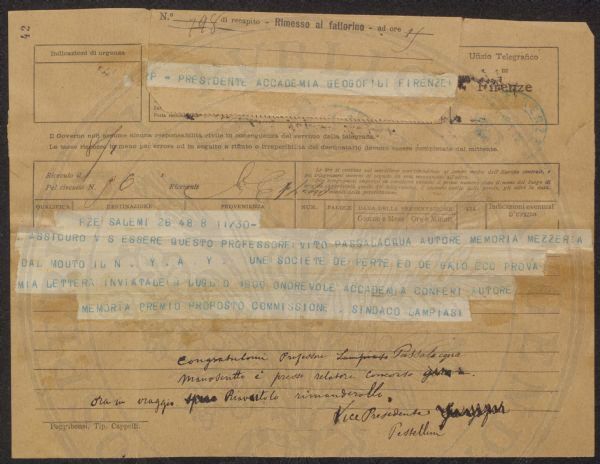 42
N.º 798 di recapito - Rimesso al fattorino - ad ore
Indicazioni di urgenza
Ufizio Telegrafico
DI
Firenze
P = PRESIDENTE ACCADEMIA GEOGOFILI FIRENZE
Il Governo non assume alcuna responsabilità civile in conseguenza del servizio della telegrafia.
Le tasse riscosse in meno per errore od in seguito a rifiuto o irreperibilità del destinatario devono essere completate dal mittente.
Ricevuto il
Pel circuito N. Ricevente
QUALIFICA DESTINAZIONE PROVENIENZA NUM. PAROLE DATA DELLA PRESENTAZIONE Indicazioni eventuali
Giorno e Mese Ore e Minuti d'ufizio
FZE SALEMI 26 48 8 11/30-
ASSICURO V S ESSERE QUESTO PROFESSORE VITO PASSALACQUA AUTORE MEMORIA MEZZERIA
DAL MOUTO IL N . Y . A . Y . UNE SOCIETE DE PERTE ED DE GAIO ECO PROVA
MIA LETTERA INVIATALE 9 LUGLIO 1900 ONOREVOLE ACCADEMIA CONFERI AUTORE
MEMORIA PREMIO PROPOSTO COMMISSIONE . SINDACO LAMPIASI
Congratulomi Professore Passalacqua
Manoscritto è presso relatore concorso
ora in viaggio. rimanderollo.
Vice Presidente
Pestellini
Poggibonsi, Tip. Cappelli.